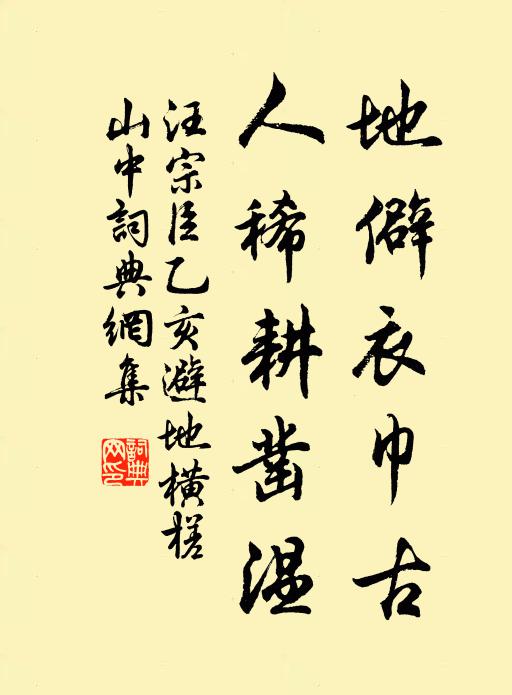 地僻衣巾古
人稀耕凿温
汪宗臣乙亥避地横槎
山中詞典網集
詞典
网印